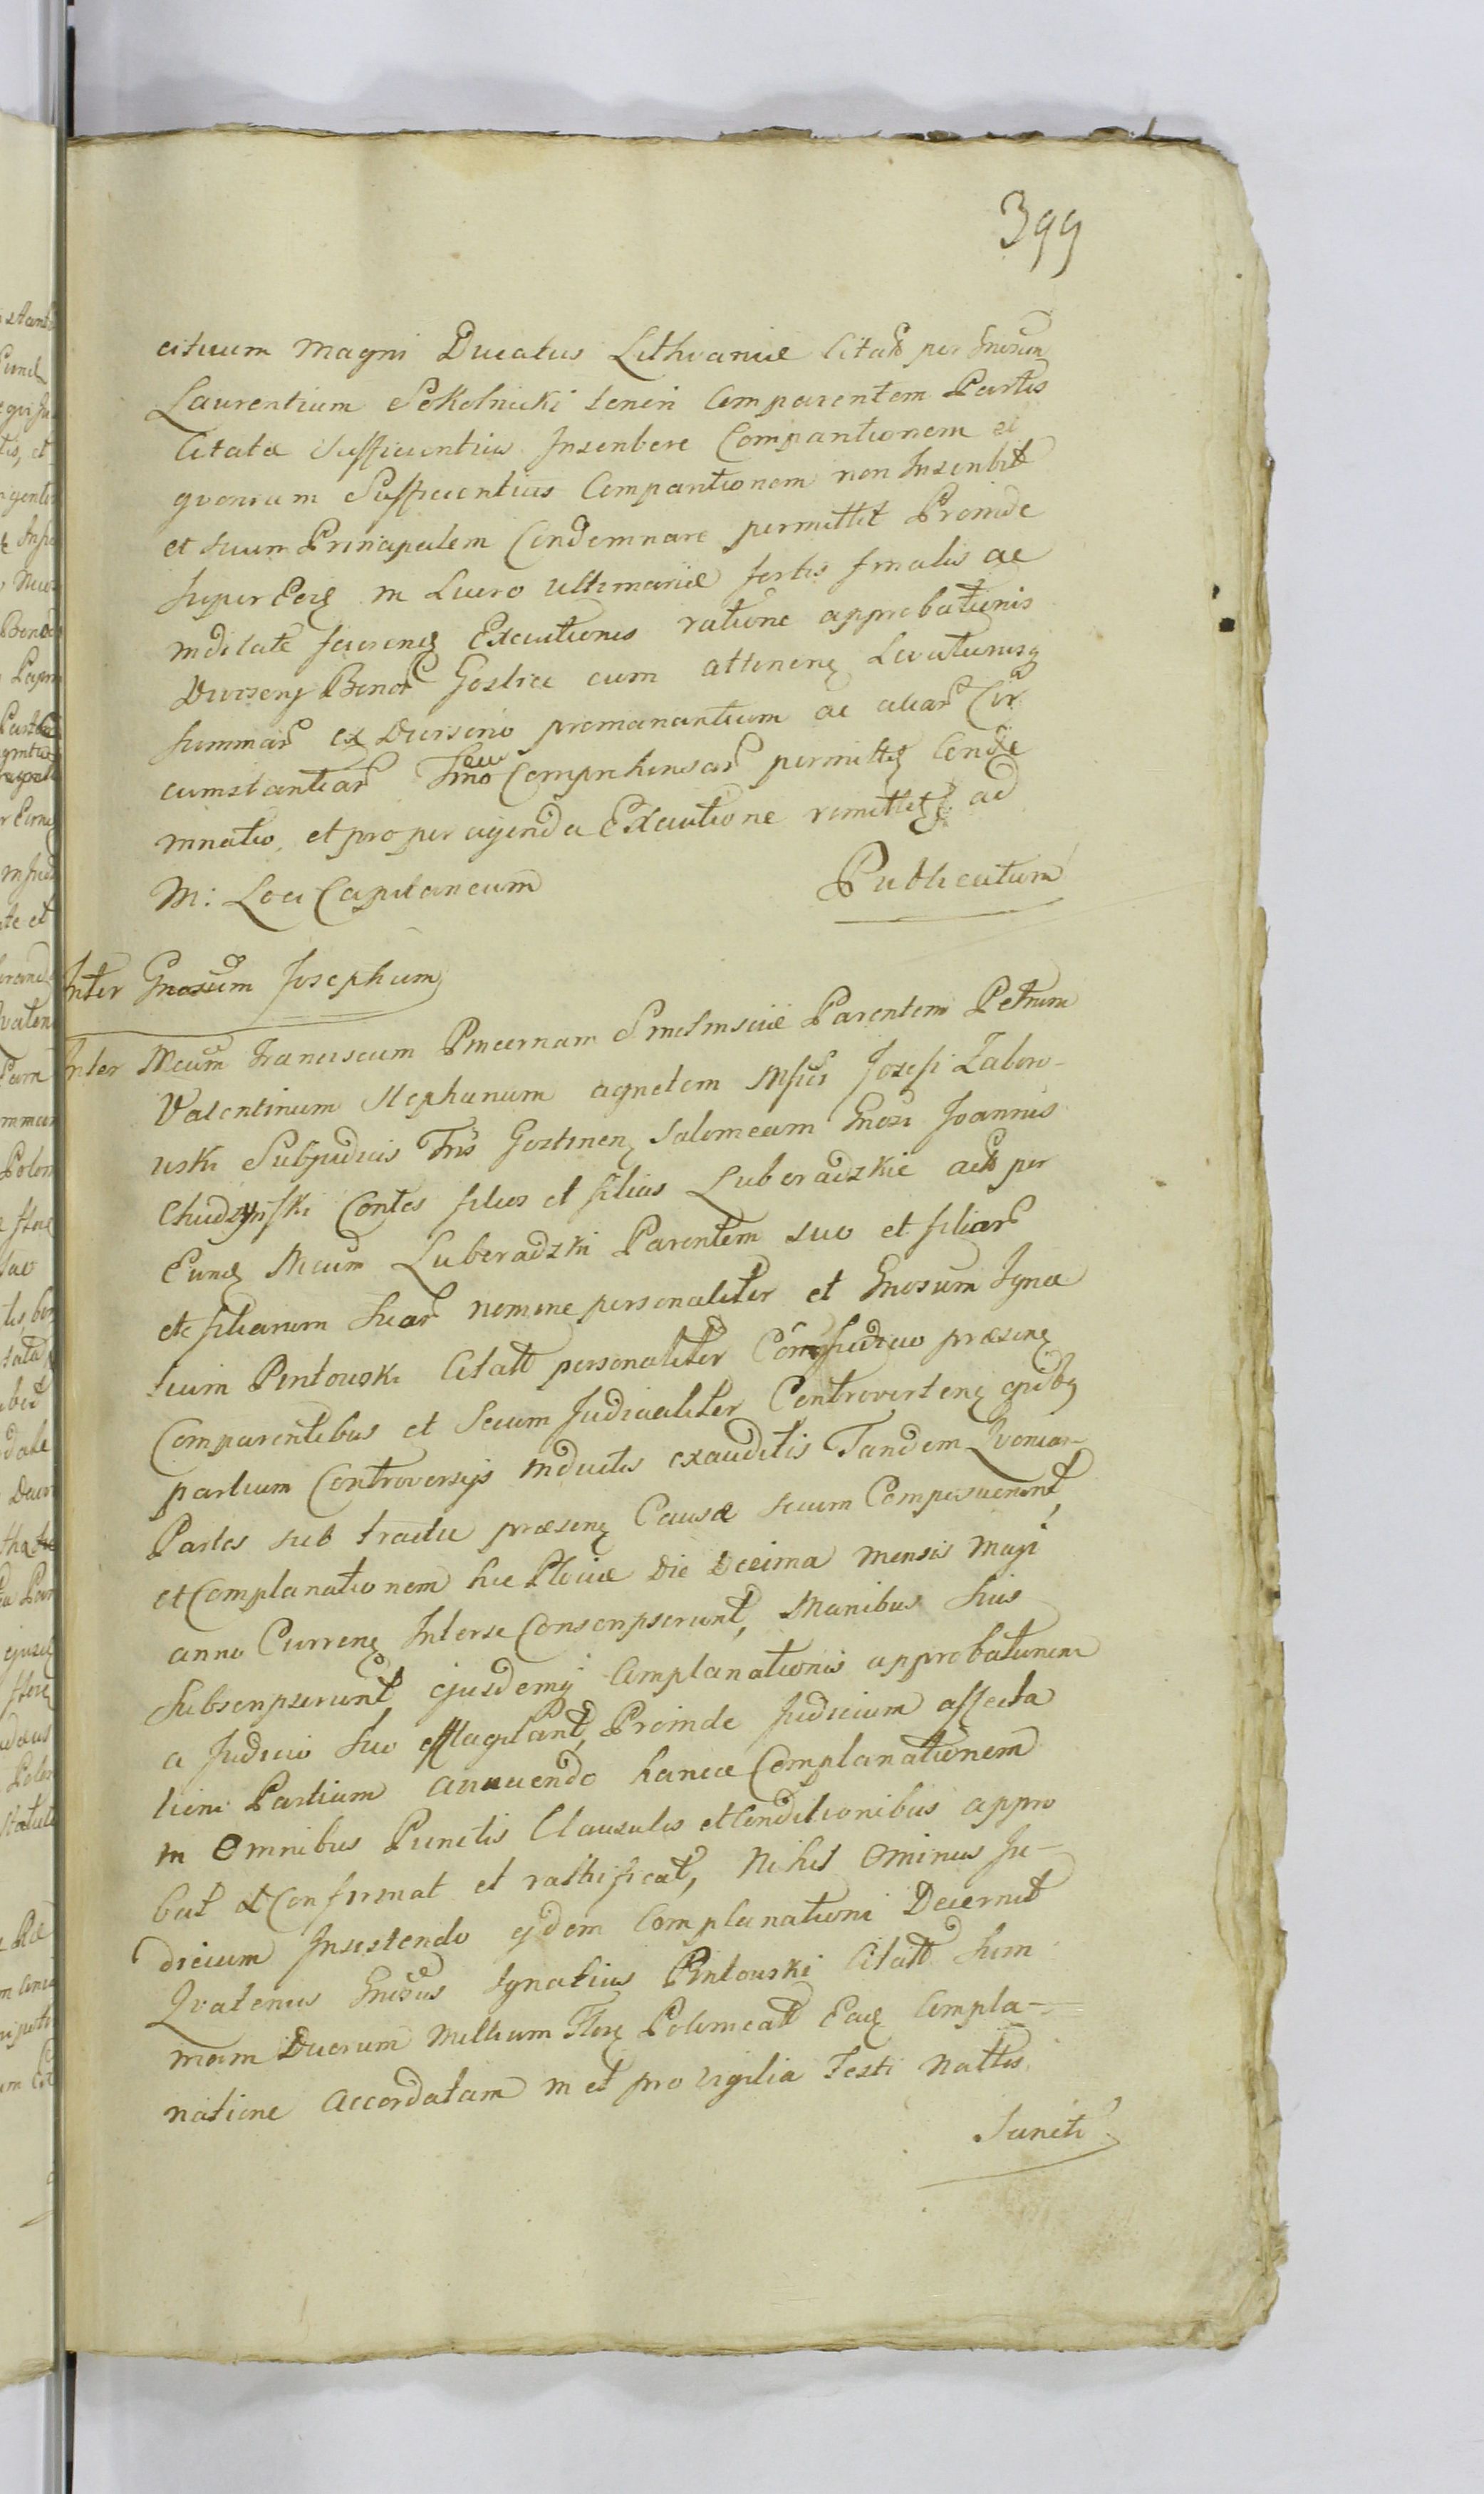 399
cituum Magni Ducatus Lithvaniæ Citatt per Gnosum
Laurentium Sokolnicki teneri Comparentem Partis
Citatæ Sufficientius Inscribere Comparitionem et
qvoniam Sufficientius Comparitionem non Inscribit
et suum Principalem Condemnare permittit Proinde
super Eoq in Lucro ultimariæ sortis finalis ac
indilate fieren Executionis ratione approbationis
Divisen Bonor Gostice cum attinen Levationisq
summar ex Divisorio promanantium ac aliar Cir
cumstantiar Tmno Comprehensar permittq Conde
mnatio, et pro peragenda Executione remittitq ad
M: Loci Capitaneum Publicatum
Inter Gnosum Josephum
Inter Mcum Franciscum Pincernam Parentem Petrum
Valentinum Stephanum Agnetem Msfici Josefi Zaboro-
wski Subjudicis Tris Gostinen Salomeam Gnosi Joannis
Chudzynski Contes filios et filias Luberadzkie actt per
Eund Mcum Luberadzki Parentem suo et filiar
et filiarum suar nomine personaliter et Gnosum Igna
tium Pintowski Citatt personaliter Coram Judicio præsen
Comparentibus et Secum Judicialiter Controverten qvibq
partium Controversijs inductis exauditis Tandem Qvoniam
Partes sub tractu præsen Causæ secum Composuerunt,
et Complanationem hic Plociæ Die Decima Mensis Maji
anno Curren Interse Conscripserunt, Manibus suis
Subscripserunt ejusdemq Complanationis approbationem
a Judicio suo efflagitant, Proinde Judicium affecta
tioni Partium annuendo hancce Complanationem
in Omnibus Punctis Clausulis et Conditionibus appro
bat et Confirmat et rathificat, Nihil Ominus Ju-
dicium Insistendo ejdem Complanationi Decernit
Qvatenus Gnosus Ignatius Pintowski Citatt Sum
mam Duorum Millium Flor Polonicatt Eaq Compla-
natione Accordatam in et pro vigilia Festi Nattis
Sancti